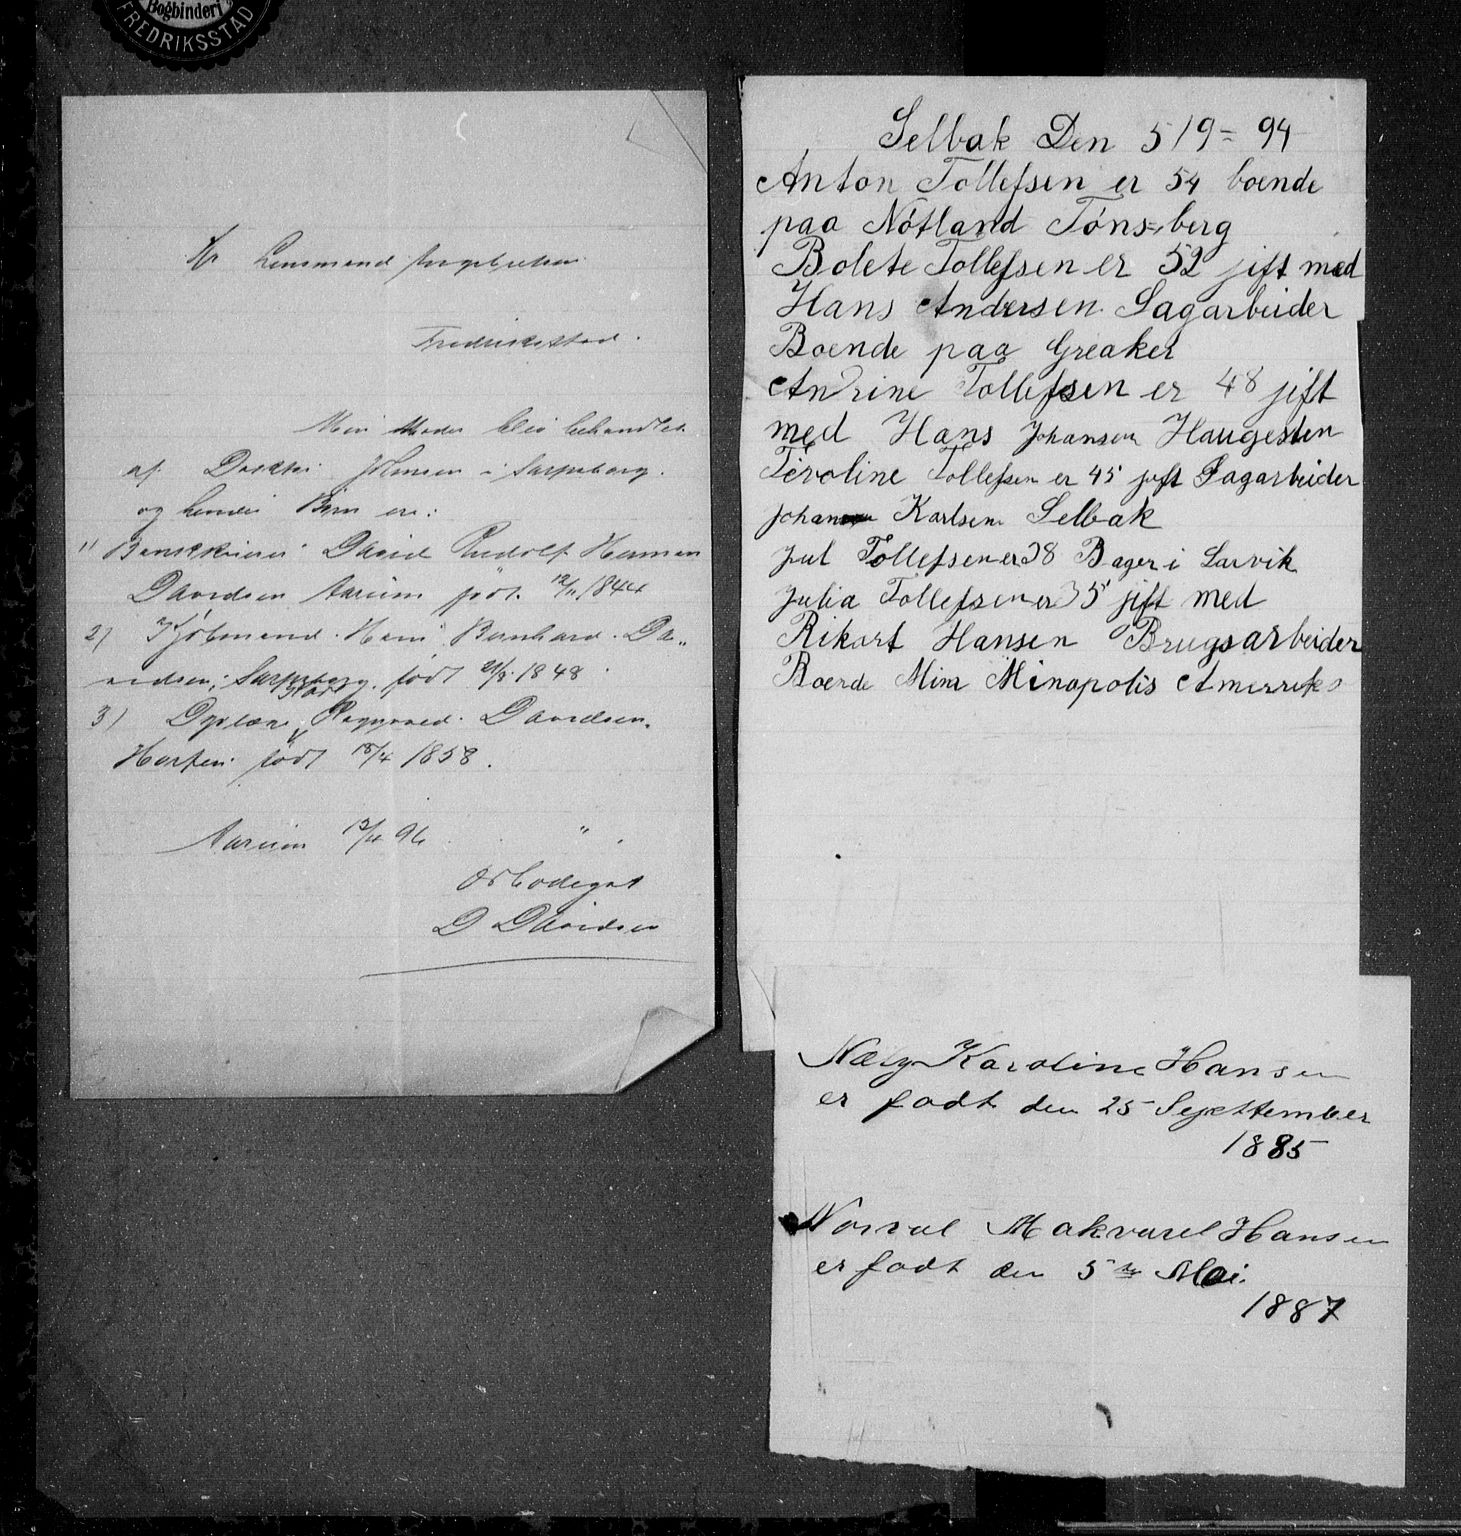 Bogbinderi
FREDRIKSSTAD
Hr Lensmand
Fredriksstad.
Min Moder blev behandlet
af Doktor Johnsen i Sarpsborg.
og hendes Børn ere:
1) David Rudolf Herman
Davidsen Aarum født 12/11 1844
2) Kjøbmand Hans Bernhard Da„
vidsen, Sarpsborg. født 21/8 1848.
3) Davidsen.
Horten født 18/4 1858.
Aarum 12/4 96
Ærbødigst
D Davidsen
Selbak Den 5/9 = 94
Anton Tollefsen er 54 boende
paa Nötland Töns=berg
Bolete Tollefsen er 52 jift med
Hans Andersen Sagarbeider
Boende paa Greaker
Andrine Tollefsen er 48 jift
med Hans Johansen Haugesten
Tollefsen er 45 jift Sagarbeider
Johan Karlsen Selbak
Jul Tollefsen er 38 Bager i Larvik
Julia Tollefsen er 35 jift med
Rikart Hansen Brugsarbeider
Boende Minapolis Amerrika
Næly Karoline Hansen
er født den 25 September
1885
Norval Makvarel Hansen
er født den 5te Mai.
1887